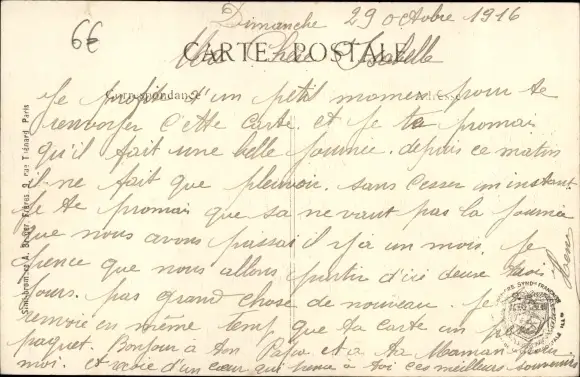 Dimanche 29 octobre 1916
6€
CARTE POSTALE
Ma Chère Isabelle
Correspondance
Adresse
Je profite d'un petit momen pour te
renvoyer cette carte. et je te promai
qu'il fait une belle journee. depuis ce matin
il ne fait que pleuvoir. sans cesser un instant
je te promai que sa ne vaut pas la journée
que nous avons passai il y a un mois. Je
pence que nous allons partir d'ici deux trois
jours. pas grand chose de nouveau. Je
renvoie en même temp que ta carte un petit
paquet. Bonjour à ton Papa et a ta Maman pour
moi. et recoie d'un cœur qui pence a toi ces meilleurs souvenirs
rue Thénard Paris